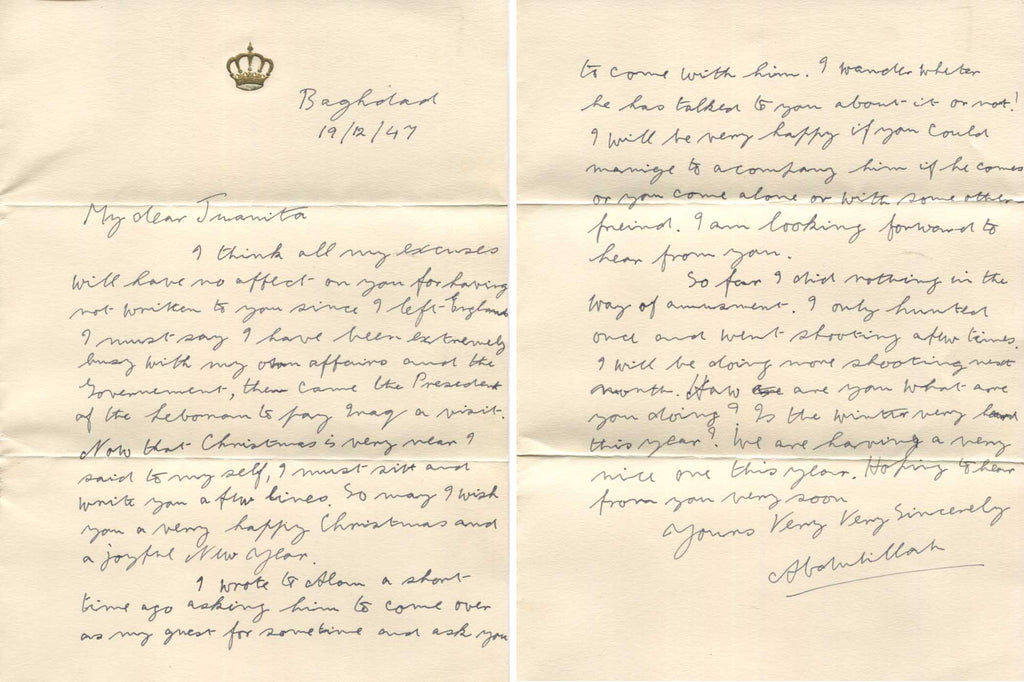 Baghdad
19/12/47
My dear Juanita
I think all my excuses
will have no affect on you for having
not written to you since I left England
I must say I have been extremely
busy with my own affairs and the
Governement, then came the President
of the Lebonan to pay Iraq a visit.
Now that Christmas is very near I
said to my self, I must sitt and
write you a few lines. So may I wish
you a very happy Christmas and
a joyful New Year.
I wrote to Alan a short
time ago asking him to come over
as my guest for sometime and ask you
to come with him. I wander wheter
he has talked to you about it or not!
I will be very happy if you could
manige to acompany him if he comes
or you come alone or with some other
freind. I am looking forward to
hear from you.
So far I did nothing in the
way of amusment. I only hunted
once and went shooting a few times.
I will be doing more shooting next
month. How are you what are
you doing? Is the winter very hard
this year? We are having a very
nice one this year. Hoping to hear
from you very soon
Yours Very Very Sincerely
Abdulillah